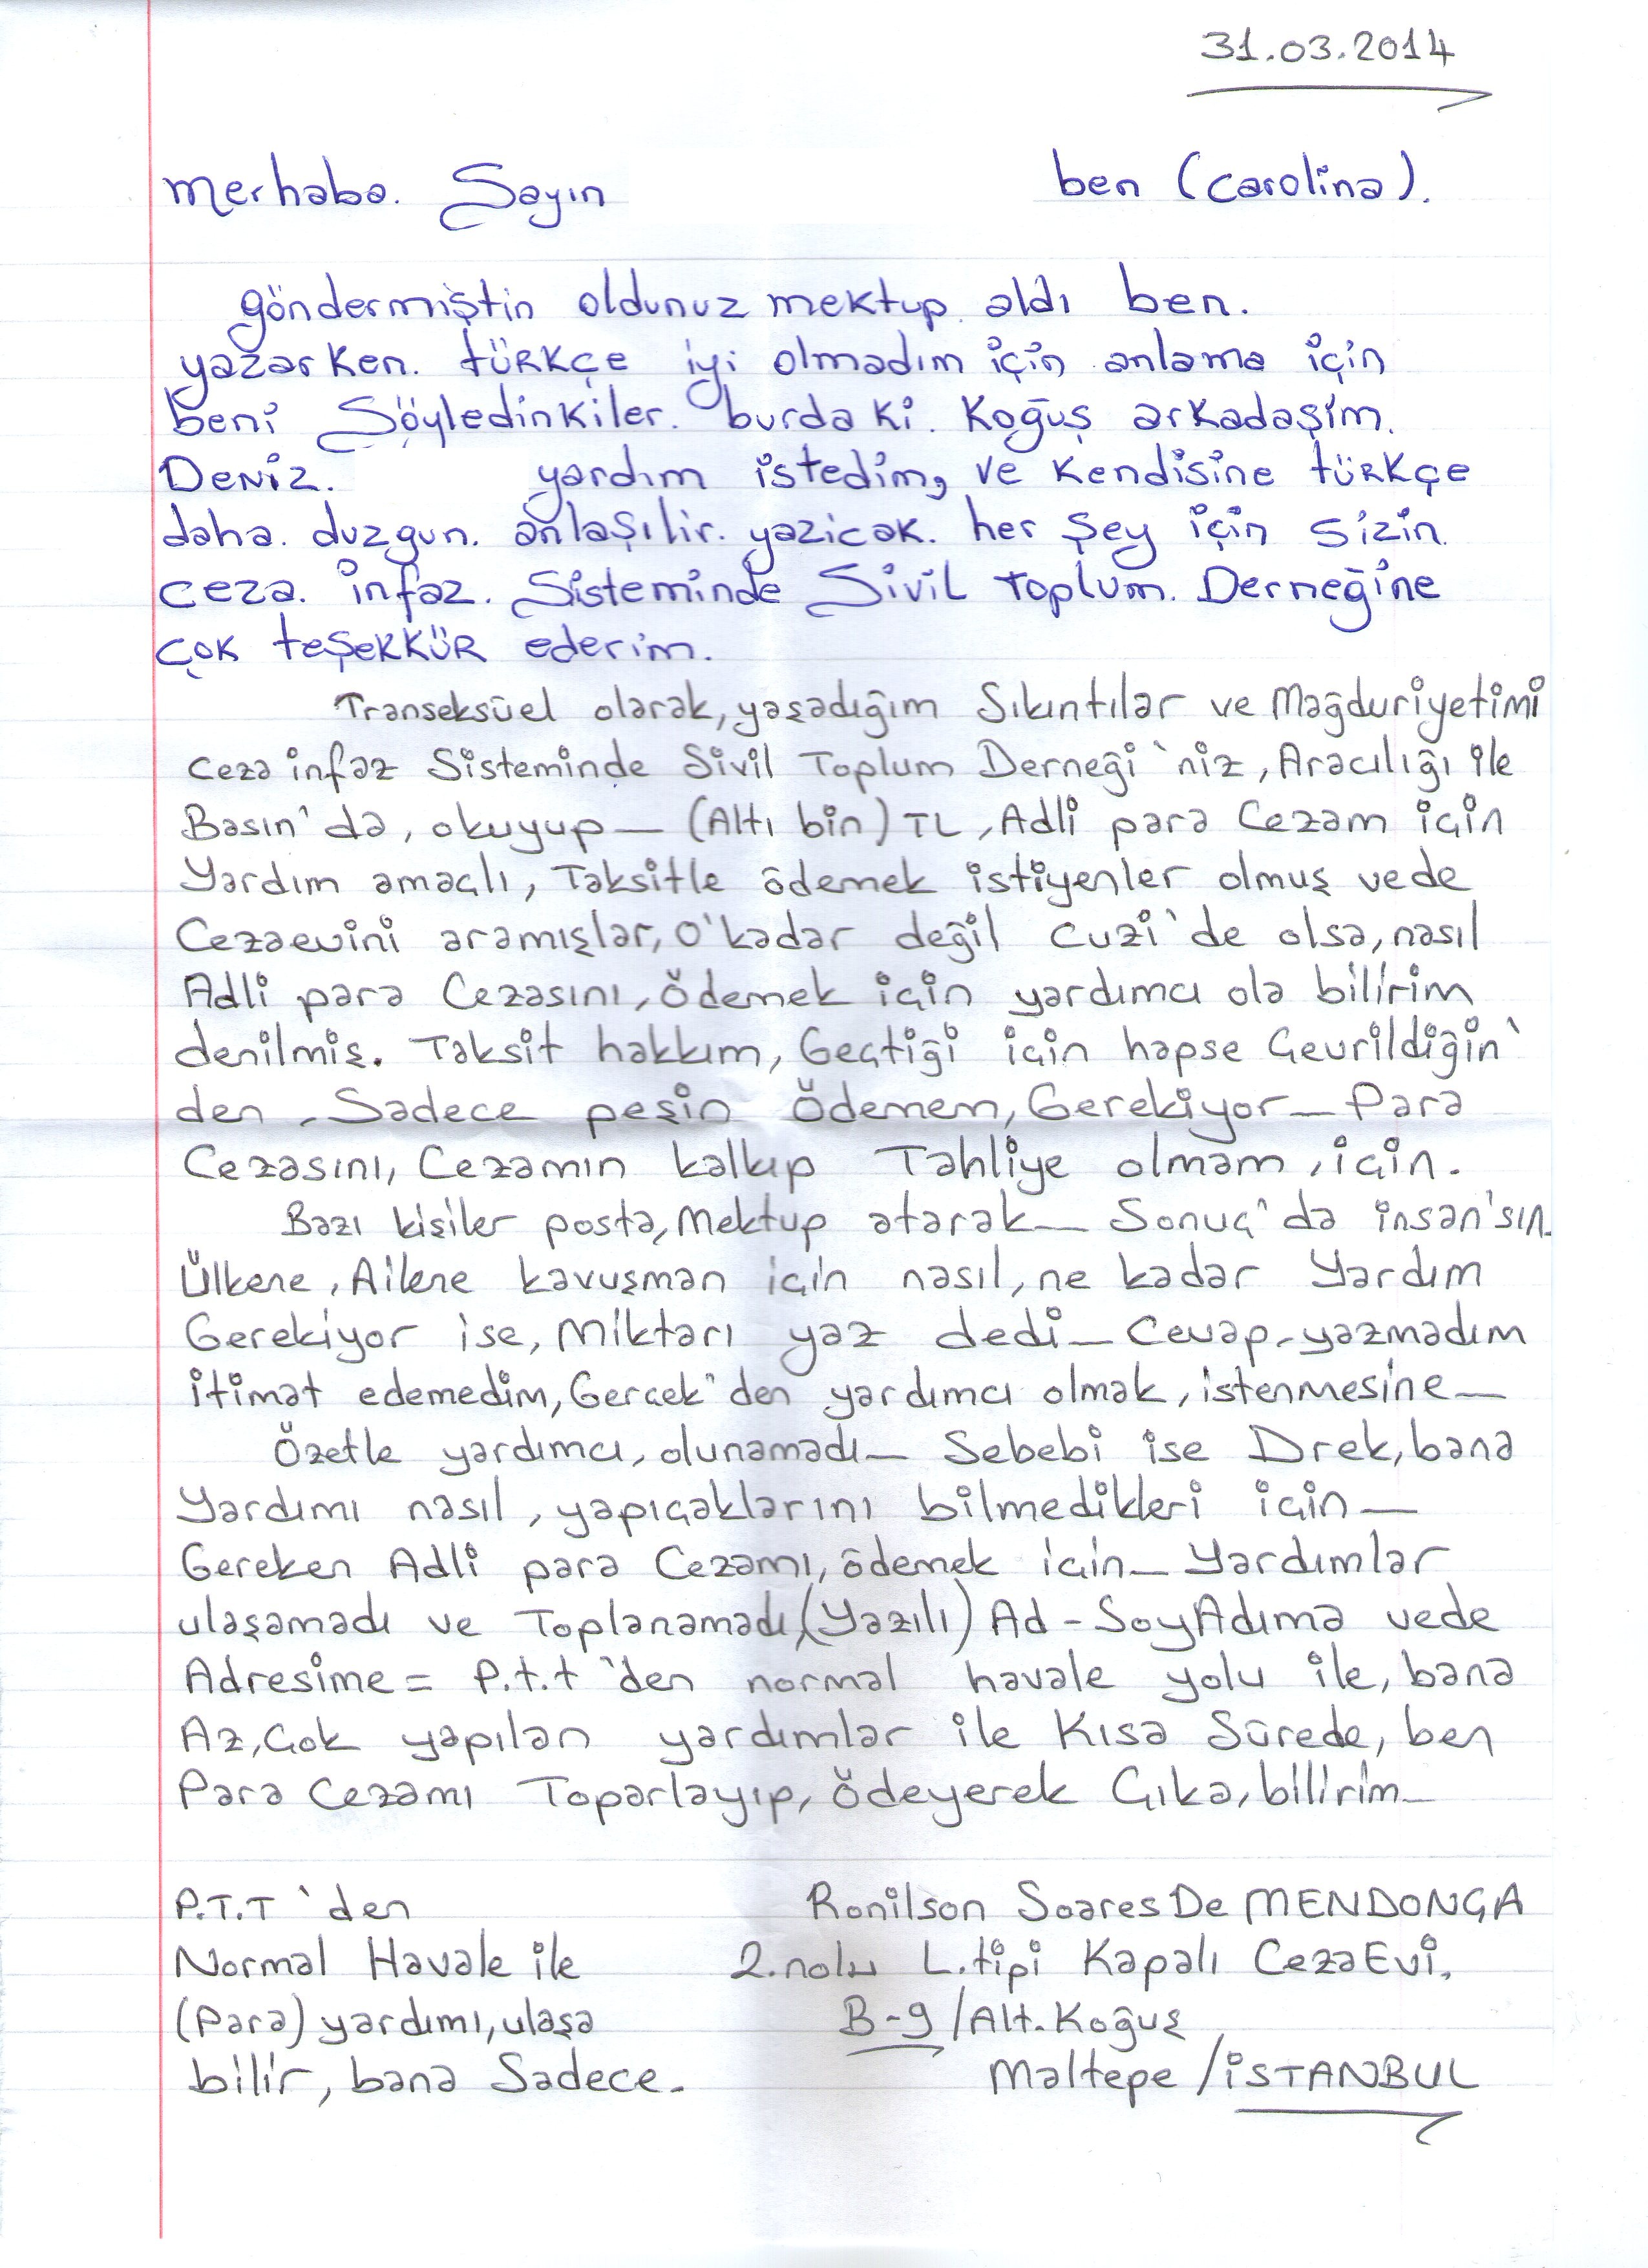 31.03.2014
merhaba. Sayın ben (carolina).
göndermiştin oldunuz mektup. aldı ben.
yazarken. türkçe iyi olmadım için anlama için
beni Söyledinkiler. burda ki. Koğuş arkadaşim.
DENİZ. yardım istedim, ve kendisine türkçe
daha. duzgun. anlaşılir. yazicak. her şey için sizin
ceza. infaz. Sisteminde Sivil Toplum. Derneğine
çok teşekkür ederim.
Transeksüel olarak, yaşadığım Sıkıntılar ve Mağduriyetimi
Ceza infaz Sisteminde Sivil Toplum Derneği'niz, Aracılığı ile
Basın'da, okuyup— (Altı bin) TL, Adli para Cezam için
Yardım amaçlı, Taksitle ödemek istiyenler olmuş vede
Cezaevini aramışlar, O'kadar değil cuzi'de olsa, nasıl
Adli para Cezasını, Ödemek için yardımcı ola bilirim
denilmiş. Taksit hakkım, Geçtiği için hapse Çevrildiğin'
den, Sadece peşin Ödemem, Gerekiyor— Para
Cezasını, Cezamın kalkıp Tahliye olmam, için.
Bazı kişiler posta, Mektup atarak— Sonuç'da insan'sın—
Ülkene, Ailene kavuşman için nasıl, ne kadar Yardım
Gerekiyor ise, Miktarı yaz dedi— Cevap-yazmadım
itimat edemedim, Gerçek'den yardımcı olmak, istenmesine—
Özetle yardımcı, olunamadı— Sebebi ise Drek, bana
Yardımı nasıl, yapıçaklarını bilmedikleri için—
Gereken Adli para Cezamı, ödemek için— Yardımlar
ulaşamadı ve Toplanamadı, (Yazılı) Ad-SoyAdıma vede
Adresime= P.t.t'den normal havale yolu ile, bana
Az, Çok yapılan yardımlar ile Kısa Sürede, ben
Para Cezamı Toparlayıp, Ödeyerek Çıka, bilirim—
P.T.T'den Ronilson Soares De MENDONÇA
Normal Havale ile 2.nolu L.tipi Kapalı CezaEvi,
(Para) yardımı, ulaşa B-9/Alt.Koğuş
bilir, bana Sadece. Maltepe/İSTANBUL